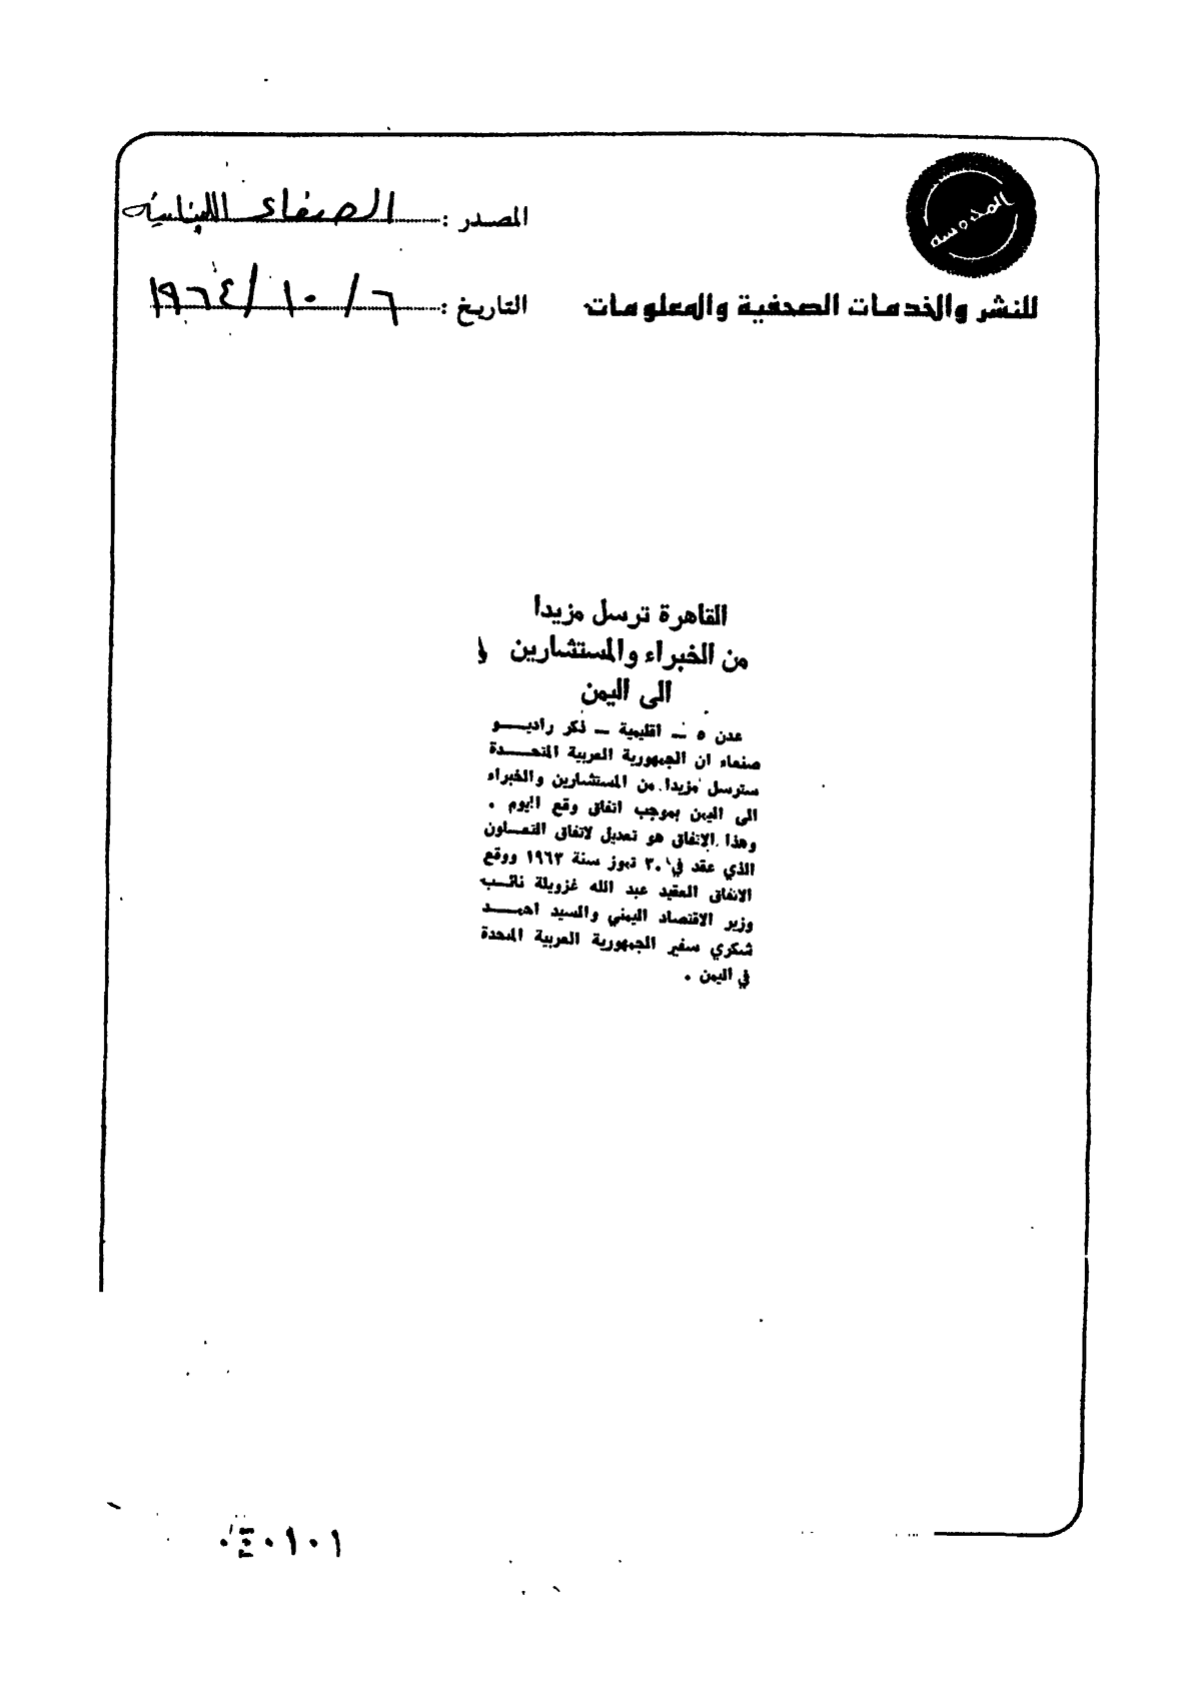 المحروسه
المصدر : الصفاء اللبنانيه
للنشر والخدمات الصحفية والمعلومات
التاريخ : ٦ / ١٠ / ١٩٦٤
القاهرة ترسل مزيدا
من الخبراء والمستشارين
الى اليمن
عدن ٥ ــ اقليمية ــ ذكر راديــو
صنعاء ان الجمهورية العربية المتحــدة
سترسل مزيدا من المستشارين والخبراء
الى اليمن بموجب اتفاق وقع اليوم .
وهذا الاتفاق هو تعديل لاتفاق التعــاون
الذي عقد في ٣٠ تموز سنة ١٩٦٣ ووقع
الاتفاق العقيد عبد الله غزويلة نائــب
وزير الاقتصاد اليمني والسيد احمــد
شكري سفير الجمهورية العربية المتحدة
في اليمن .